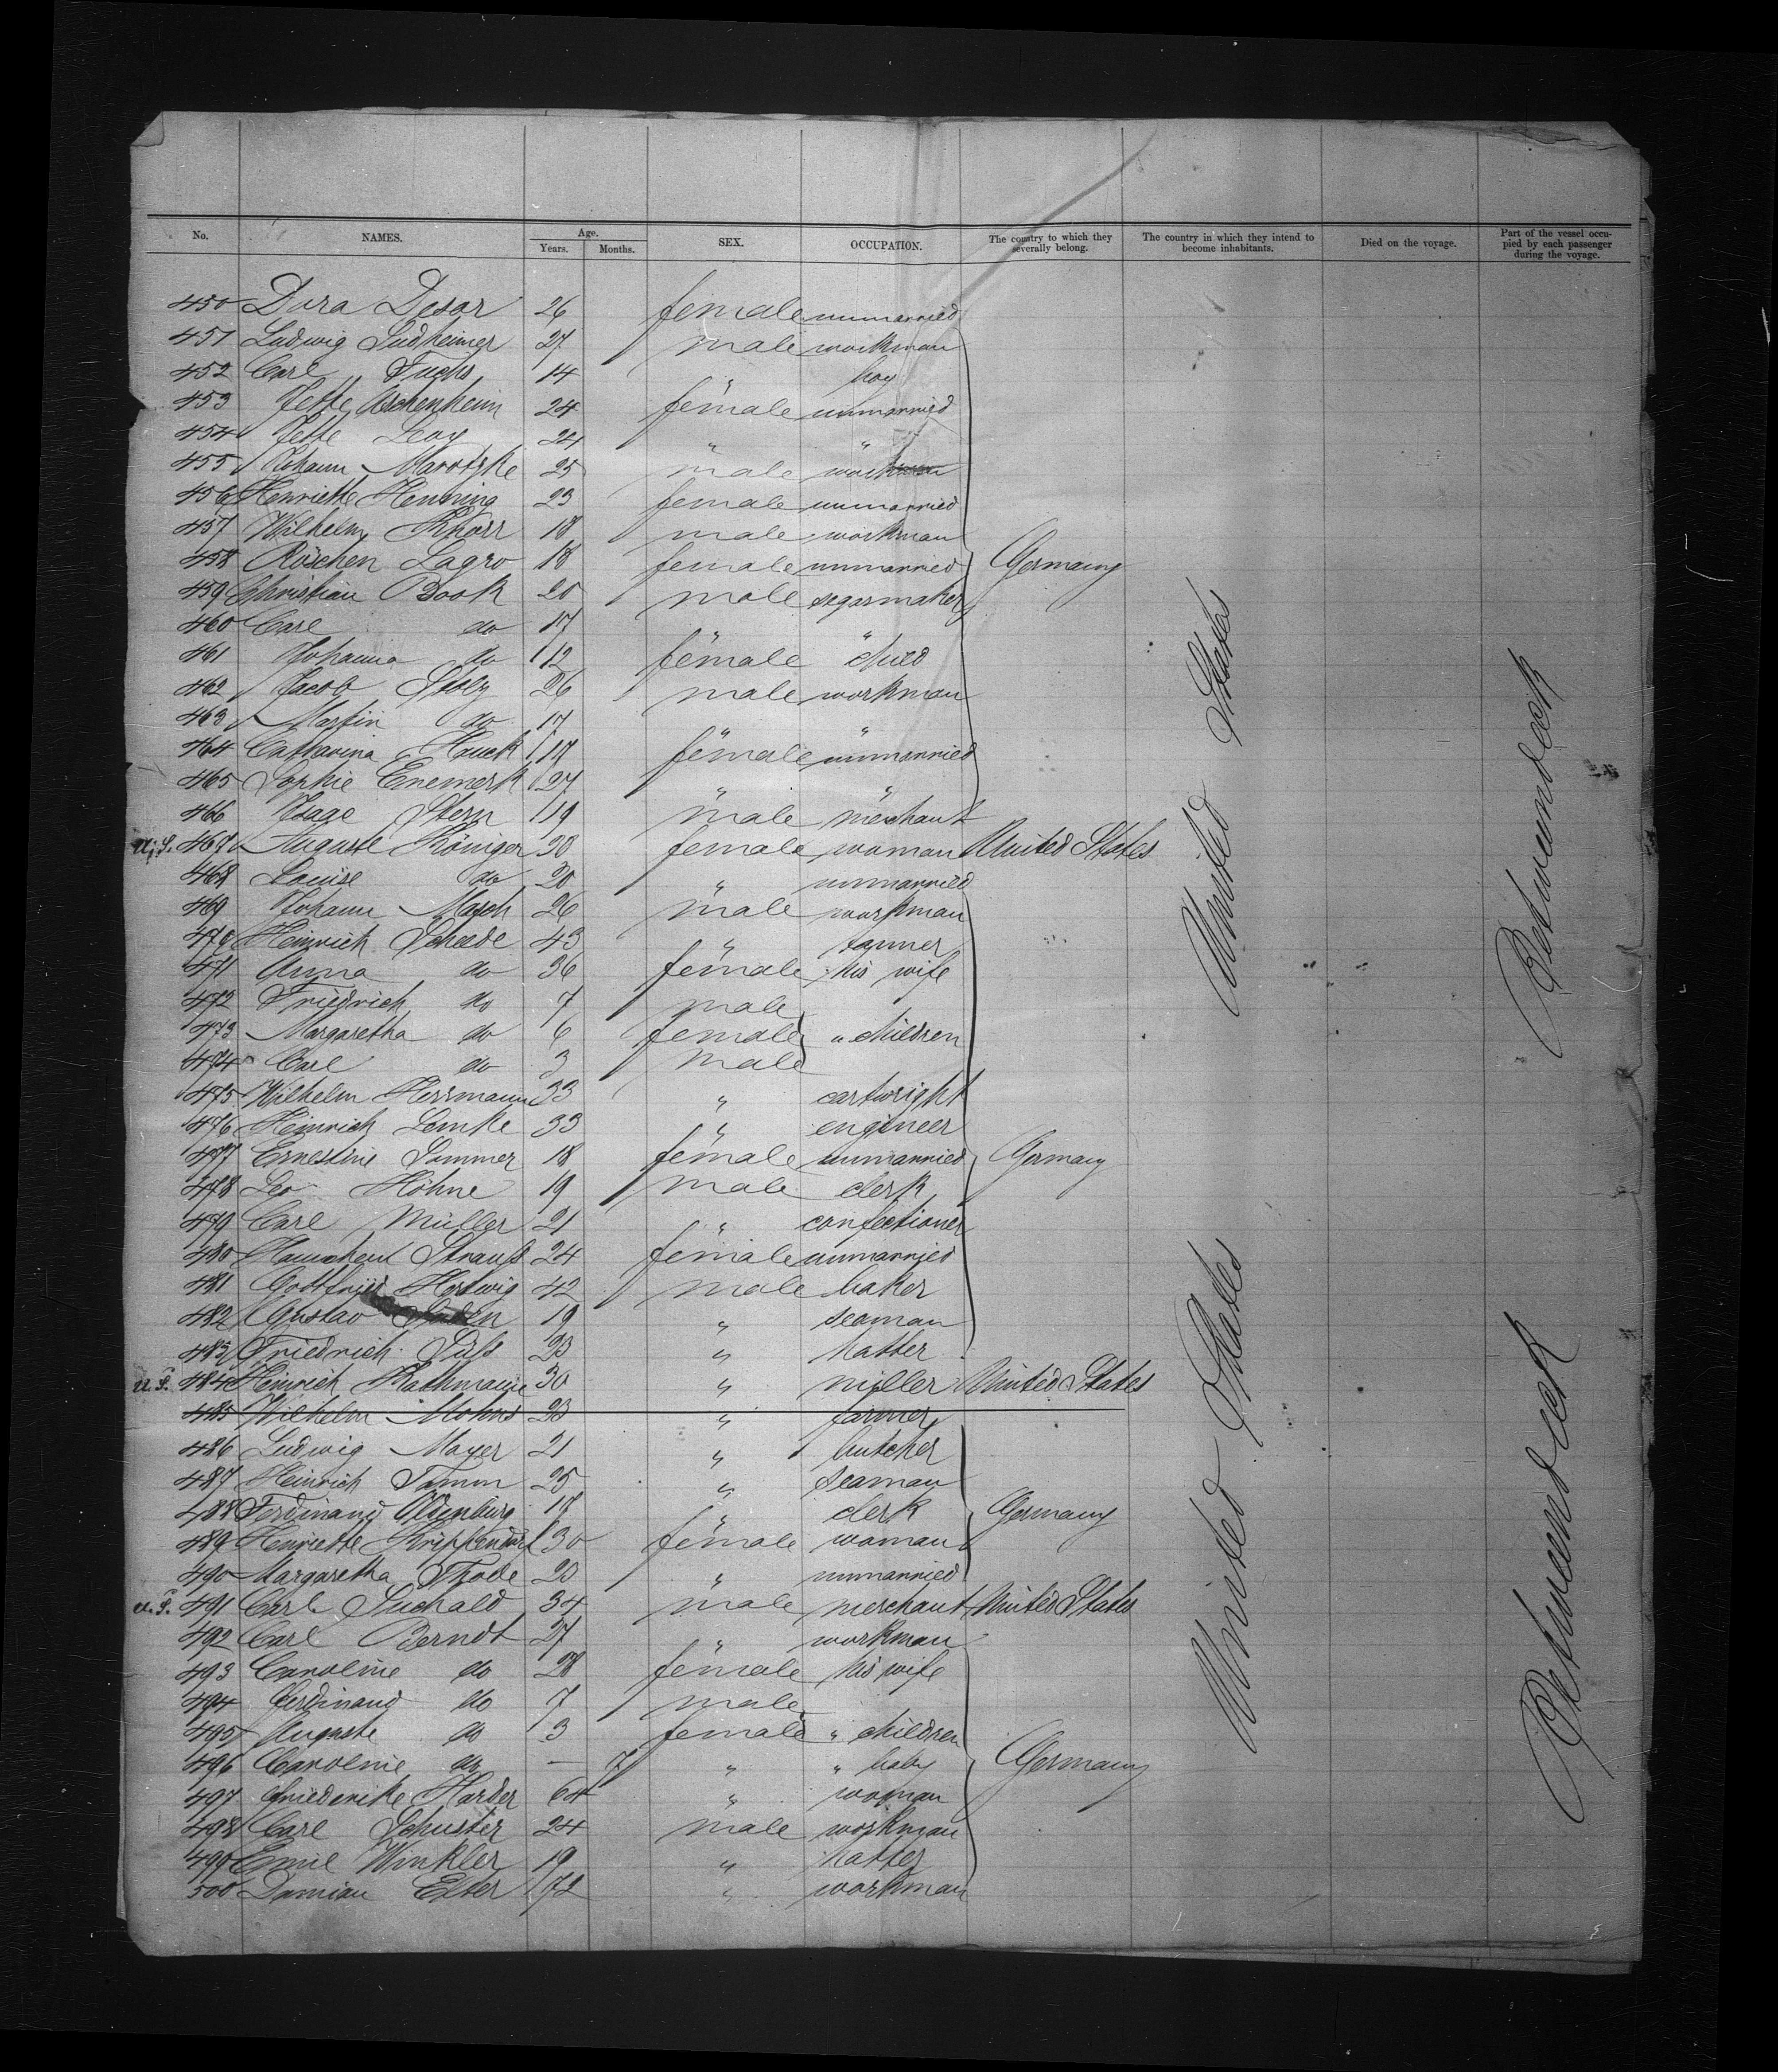 No. NAMES. Age. Years. Months. SEX. OCCUPATION. The country to which they severally belong. The country in which they intend to become inhabitants. Died on the voyage. Part of the vessel occupied by each passenger during the voyage.
450 Dora Desor 26 female unmarried
451 Ludwig Sudheimer 27 male workman
452 Carl Fuchs 14 " boy
453 Jette Aschenheim 24 female unmarried
454 Jette Levy 24 " "
455 Johann Marotzke 25 male workman
456 Henriette Henning 23 female unmarried
457 Wilhelm Knorr 18 male workman
458 Röschen Lagro 18 female unmarried Germany
459 Christian Book 20 male segarmaker
460 Carl do 17 " "
461 Johanna do 12 female child
462 Jacob Stolz 26 male workman
463 Martin do 17 " "
464 Catharina Hauck 19 female unmarried
465 Sophie Enemerk 27 " "
466 Isage Stern 19 male merchant
U.S. 467 Auguste Königer 30 female woman United States
468 Louise do 20 " unmarried
469 Johann Masch 26 male workman
470 Heinrich Scheede 43 " tanner
471 Anna do 36 female his wife
472 Friedrich do 7 male
473 Margaretha do 6 female " children
474 Carl do 3 male
475 Wilhelm Herrmann 33 " cartwright
476 Heinrich Lemke 33 " engineer
477 Ernestine Sommer 18 female unmarried Germany
478 Leo Höhne 19 male clerk
479 Carl Müller 21 " confectioner
480 Strauß 24 female unmarried
481 Gottfried Hertwig 42 male baker
482 Gustav 19 " seaman
483 Friedrich Süß 23 " hatter
U.S. 484 Heinrich Rathmann 30 " miller United States
485 Wilhelm Mohns 23 " farmer
486 Ludwig Mayer 21 " butcher
487 Heinrich Tamm 25 " seaman
488 Ferdinand Oldenburg 18 " clerk Germany
489 Henriette Krippendorf 30 female woman
490 Margaretha Thode 23 " unmarried
U.S. 491 Carl Suchald 34 male merchant United States
492 Carl Berndt 27 " workman
493 Caroline do 28 female his wife
494 Ferdinand do 7 male
495 Auguste do 3 female " children
496 Caroline do — 7 " " baby Germany
497 Friederike Harder 64 " woman
498 Carl Schuster 24 male workman
499 Emil Winkler 19 " hatter
500 Damian Elter 72 " workman
United States
United States
Betweendeck
Betweendeck